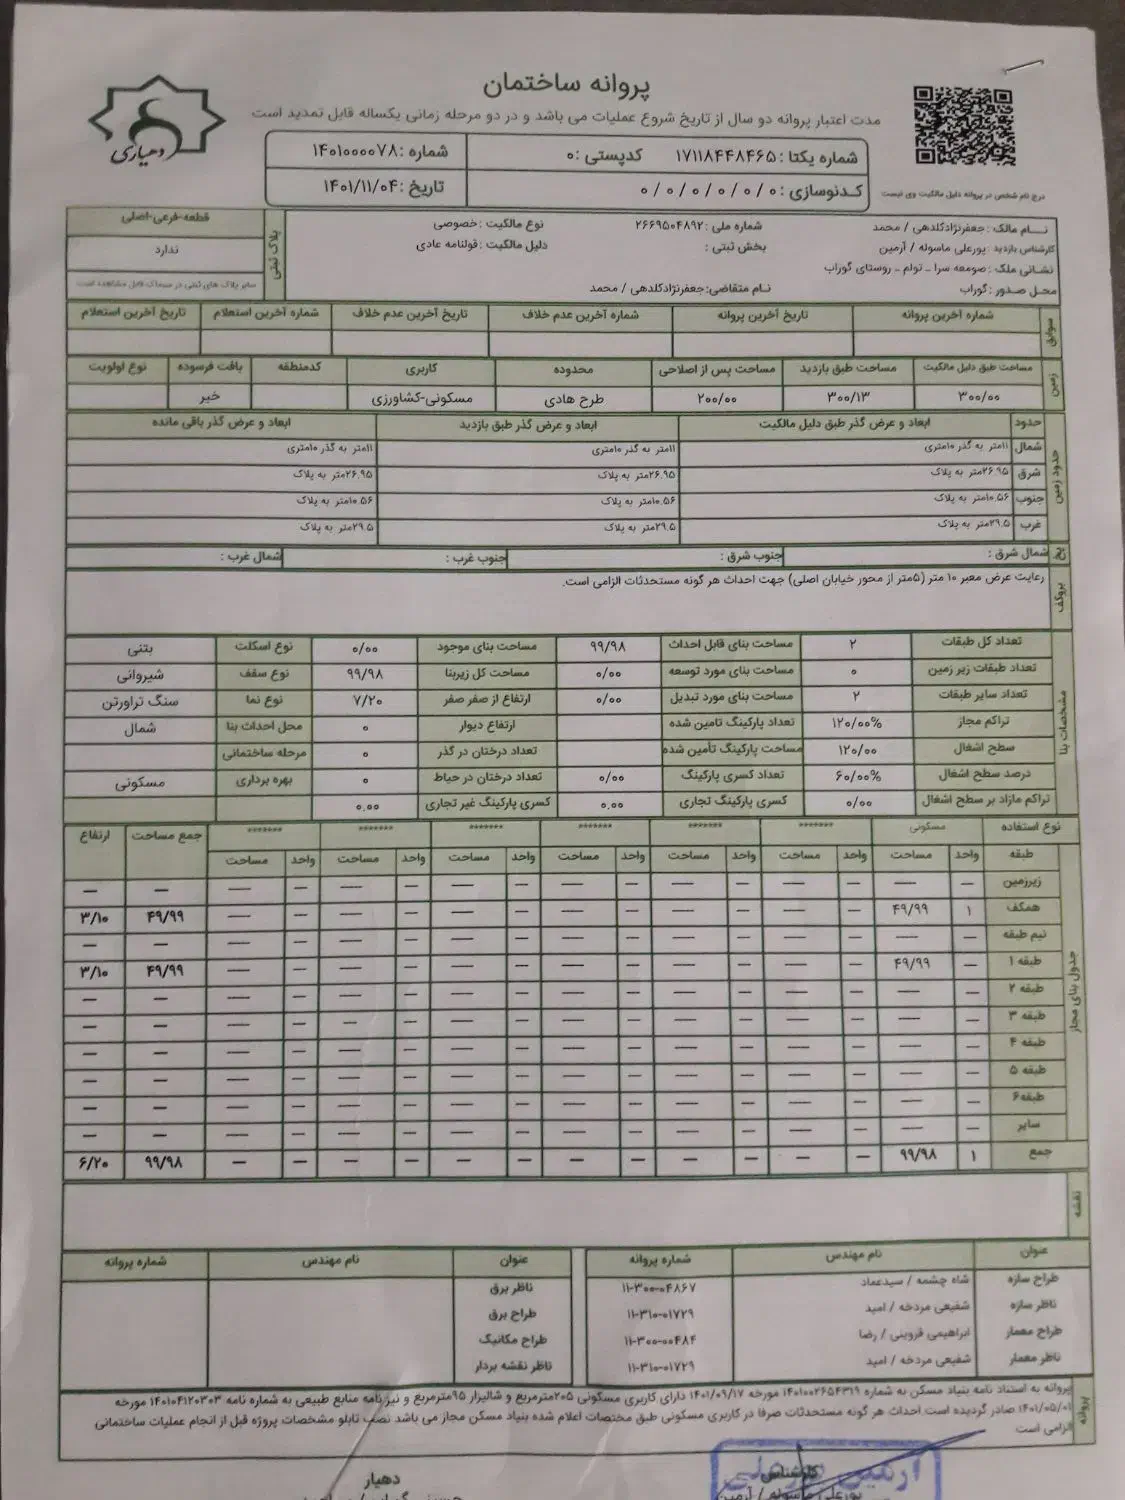 پروانه ساختمان
مدت اعتبار پروانه دو سال از تاریخ شروع عملیات می باشد و در دو مرحله زمانی یکساله قابل تمدید است
دهیاری
شماره یکتا : ۱۷۱۱۸۴۴۸۴۶۵ کدپستی : ۰ شماره : ۱۴۰۱۰۰۰۰۷۸
کدنوسازی : ۰ / ۰ / ۰ / ۰ / ۰ / ۰ / ۰ تاریخ : ۱۴۰۱/۱۱/۰۴
درج نام شخص در پروانه دلیل مالکیت وی نیست
نام مالک : جعفرنژادکلدهی / محمد شماره ملی : ۲۶۶۹۵۰۴۸۹۲ نوع مالکیت : خصوصی
کارشناس بازدید : پورعلی ماسوله / آرمین بخش ثبتی : دلیل مالکیت : قولنامه عادی
نشانی ملک : صومعه سرا - تولم - روستای گوراب
محل صدور : گوراب نام متقاضی: جعفرنژادکلدهی / محمد
پلاک ثبتی قطعه-فرعی-اصلی
ندارد
سایر پلاک های ثبتی در سیماک قابل مشاهده است
سوابق شماره آخرین پروانه تاریخ آخرین پروانه شماره آخرین عدم خلاف تاریخ آخرین عدم خلاف شماره آخرین استعلام تاریخ آخرین استعلام
زمین مساحت طبق دلیل مالکیت مساحت طبق بازدید مساحت پس از اصلاحی محدوده کاربری کدمنطقه بافت فرسوده نوع اولویت
۳۰۰/۰۰ ۳۰۰/۱۳ ۲۰۰/۰۰ طرح هادی مسکونی-کشاورزی خیر
حدود زمین حدود ابعاد و عرض گذر طبق دلیل مالکیت ابعاد و عرض گذر طبق بازدید ابعاد و عرض گذر باقی مانده
شمال ۱۱متر به گذر ۱۰متری ۱۱متر به گذر ۱۰متری ۱۱متر به گذر ۱۰متری
شرق ۲۶.۹۵متر به پلاک ۲۶.۹۵متر به پلاک ۲۶.۹۵متر به پلاک
جنوب ۱۰.۵۶متر به پلاک ۱۰.۵۶متر به پلاک ۱۰.۵۶متر به پلاک
غرب ۲۹.۵متر به پلاک ۲۹.۵متر به پلاک ۲۹.۵متر به پلاک
پخ شمال شرق : جنوب شرق : جنوب غرب : شمال غرب :
بروکف رعایت عرض معبر ۱۰ متر (۵متر از محور خیابان اصلی) جهت احداث هر گونه مستحدثات الزامی است.
مشخصات بنا
تعداد کل طبقات ۲ مساحت بنای قابل احداث ۹۹/۹۸ مساحت بنای موجود ۰/۰۰ نوع اسکلت بتنی
تعداد طبقات زیر زمین ۰ مساحت بنای مورد توسعه ۰/۰۰ مساحت کل زیربنا ۹۹/۹۸ نوع سقف شیروانی
تعداد سایر طبقات ۲ مساحت بنای مورد تبدیل ۰/۰۰ ارتفاع از صفر صفر ۷/۲۰ نوع نما سنگ تراورتن
تراکم مجاز ۱۲۰/۰۰% تعداد پارکینگ تامین شده ارتفاع دیوار ۰ محل احداث بنا شمال
سطح اشغال ۱۲۰/۰۰ مساحت پارکینگ تأمین شده تعداد درختان در گذر ۰ مرحله ساختمانی
درصد سطح اشغال ۶۰/۰۰% تعداد کسری پارکینگ ۰/۰۰ تعداد درختان در حیاط ۰ بهره برداری مسکونی
تراکم مازاد بر سطح اشغال ۰/۰۰ کسری پارکینگ تجاری ۰.۰۰ کسری پارکینگ غیر تجاری ۰.۰۰
نوع استفاده مسکونی ******* ******* ******* ******* ******* ******* جمع مساحت ارتفاع
طبقه واحد مساحت واحد مساحت واحد مساحت واحد مساحت واحد مساحت واحد مساحت واحد مساحت
جدول بنای مجاز
زیرزمین — — — — — — — — — — — — — — — —
همکف ۱ ۴۹/۹۹ — — — — — — — — — — — — ۴۹/۹۹ ۳/۱۰
نیم طبقه — — — — — — — — — — — — — — — —
طبقه 1 — ۴۹/۹۹ — — — — — — — — — — — — ۴۹/۹۹ ۳/۱۰
طبقه ۲ — — — — — — — — — — — — — — — —
طبقه ۳ — — — — — — — — — — — — — — — —
طبقه ۴ — — — — — — — — — — — — — — — —
طبقه ۵ — — — — — — — — — — — — — — — —
طبقه۶ — — — — — — — — — — — — — — — —
سایر — — — — — — — — — — — — — — — —
جمع ۱ ۹۹/۹۸ — — — — — — — — — — — — ۹۹/۹۸ ۶/۲۰
نقشه
عنوان نام مهندس شماره پروانه عنوان نام مهندس شماره پروانه
طراح سازه شاه چشمه / سیدعماد ۱۱-۳۰۰-۰۴۸۶۷ ناظر برق
ناظر سازه شفیعی مردخه / امید ۱۱-۳۱۰-۰۱۷۲۹ طراح برق
طراح معمار ابراهیمی قزوینی / رضا ۱۱-۳۰۰-۰۰۴۸۴ طراح مکانیک
ناظر معمار شفیعی مردخه / امید ۱۱-۳۱۰-۰۱۷۲۹ ناظر نقشه بردار
پروانه
پروانه به استناد نامه بنیاد مسکن به شماره ۱۴۰۱۰۰۲۶۵۴۳۱۹ مورخه ۱۴۰۱/۰۹/۱۷ دارای کاربری مسکونی ۲۰۵مترمربع و شالیزار ۹۵مترمربع و نیز نامه منابع طبیعی به شماره نامه ۱۴۰۱۰۴۱۲۰۳۰۳ مورخه
۱۴۰۱/۰۵/۰۱ صادر گردیده است.احداث هر گونه مستحدثات صرفا در کاربری مسکونی طبق مختصات اعلام شده بنیاد مسکن مجاز می باشد نصب تابلو مشخصات پروژه قبل از انجام عملیات ساختمانی
الزامی است
کارشناس دهیار
پورعلی ماسوله / آرمین